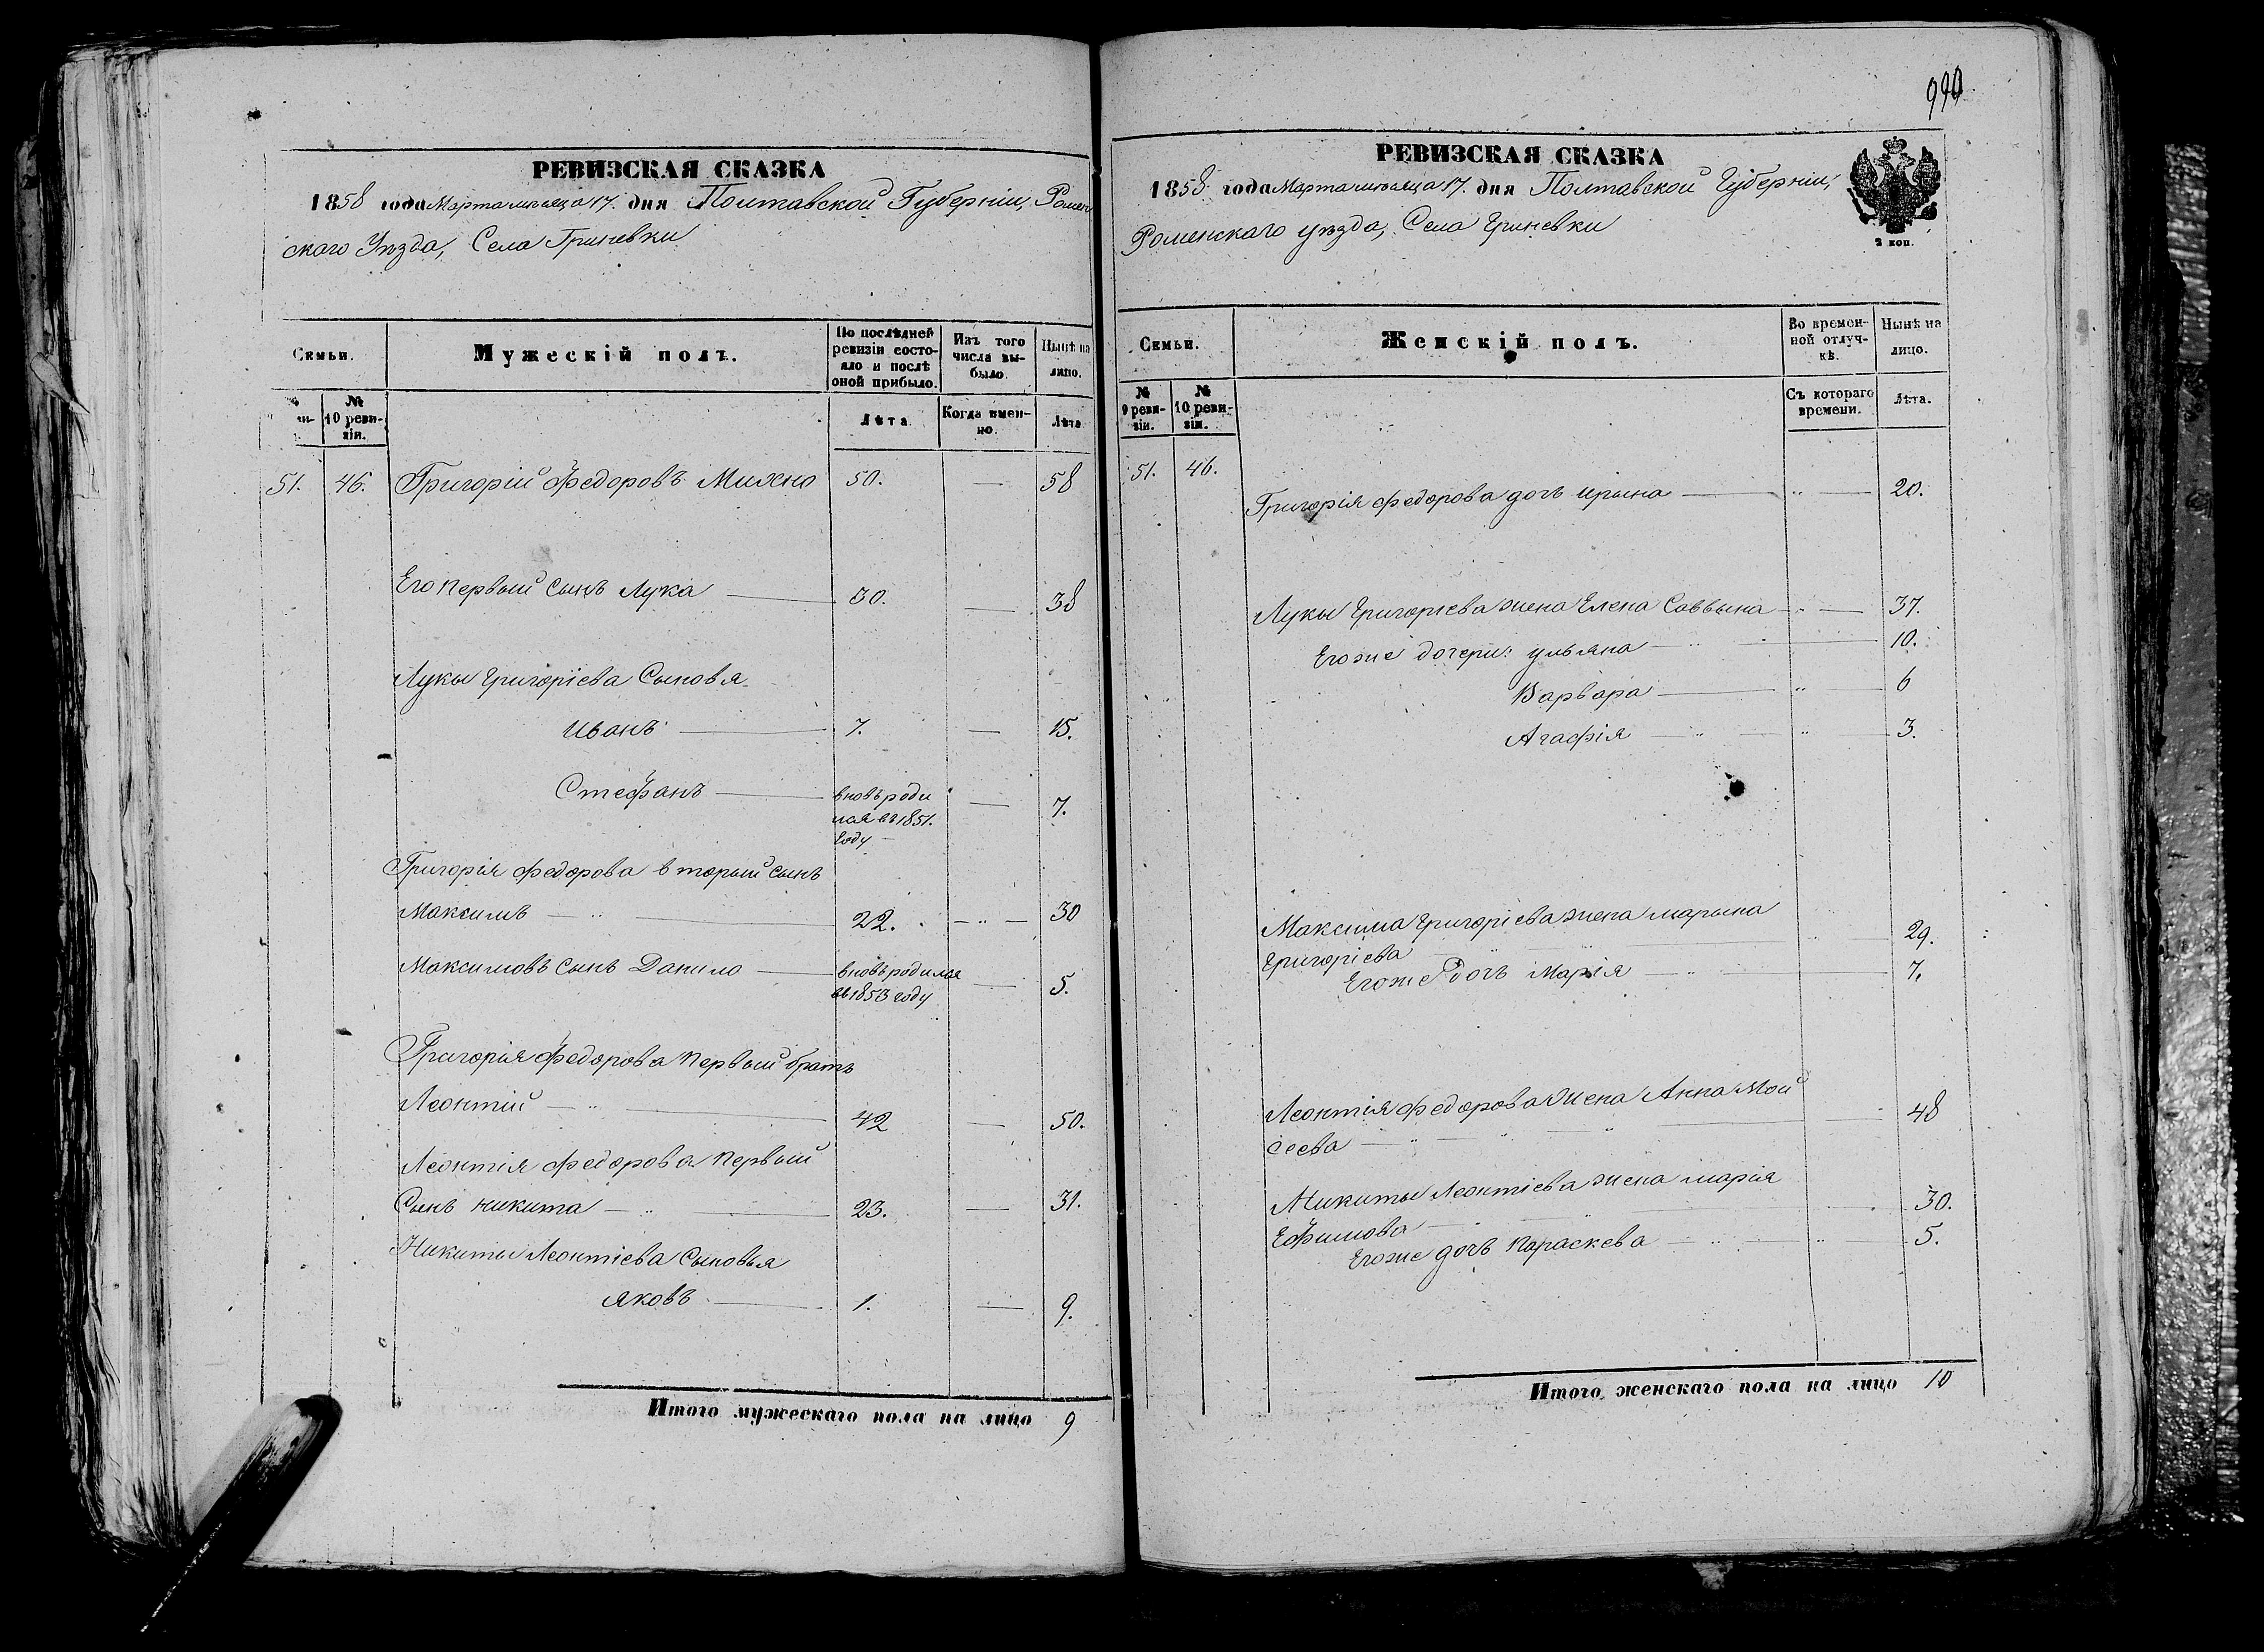 990
РЕВИЗСКАЯ СКАЗКА
1858 года Марта мѣсяца 17. дня Полтавской Губерніи, Ромен
скаго Уѣзда, Села Гриневки
Семьи.
Мужескій полъ.
По послѣдней ревизіи состояло и послѣ оной прибыло.
Изъ того числа выбыло.
Нынѣ на лицо.
№ 10 ревизіи.
Лѣта
Когда именно
Лѣта
51. 46. Григорій Федоровъ Михно 50. — 58
Его первый сынъ Лука — 30. — 38
Луки Григоріева Сыновья
Иванъ — 7. — 15.
Стефанъ — вновь роди — 7.
лся въ 1851.
году —
Григорія Федорова вторый сынъ
Максимъ — 22. — 30
Максимовъ сынъ Данило — вновь родился — 5.
въ 1853 году
Григорія Федорова первый братъ
Леонтій — 42 — 50.
Леонтія Федорова первый
Сынъ Никита — 23. — 31.
Никиты Леонтіева Сыновья
Яковъ — 1. — 9.
Итого мужескаго пола на лицо 9
РЕВИЗСКАЯ СКАЗКА
1858 года Марта мѣсяца 17. дня Полтавской Губерніи,
Роменскаго уѣзда, Села Гриневки
2 коп.
Семьи.
Женскій полъ.
Во временной отлучкѣ.
Нынѣ на лицо.
№ 9 ревизіи.
№ 10 ревизіи.
Съ котораго времени.
Лѣта.
51. 46.
Григорія Федорова дочь Ирына — 20.
Лукы Григоріева жена Елена Саввына — 37.
Егоже дочери: Ульяна — 10.
Варвара — 6
Агафія — 3.
Максима Григоріева жена Марына
Григоріева — 29.
Егоже дочь Марія — 7.
Леонтія Федорова жена Анна Мой
сеева — 48
Никиты Леонтіева жена Марія
Ефимова — 30.
Егоже дочь Параскева — 5.
Итого женскаго пола на лицо 10